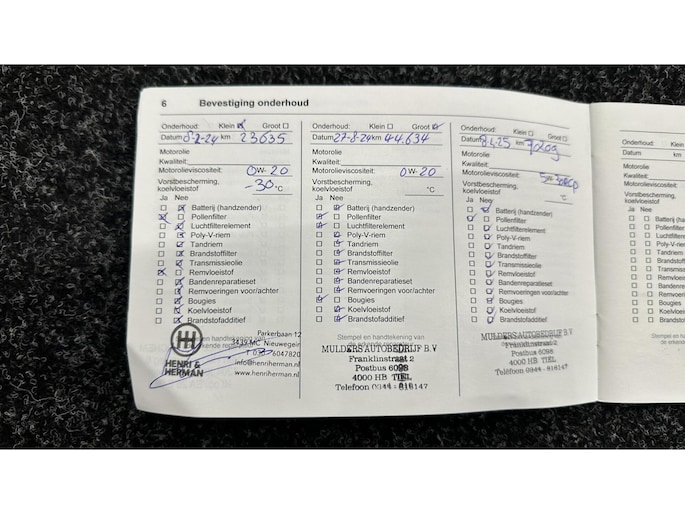 6 Bevestiging onderhoud
Onderhoud: Klein Groot
Datum 8-2-24 km 23635
Motorolie
Kwaliteit:
Motorolieviscositeit: 0W-20
Vorstbescherming, koelvloeistof -30 °C
Ja Nee
Batterij (handzender)
Pollenfilter
Luchtfilterelement
Poly-V-riem
Tandriem
Brandstoffilter
Transmissieolie
Remvloeistof
Bandenreparatieset
Remvoeringen voor/achter
Bougies
Koelvloeistof
Brandstofadditief
Parkerbaan 12
3439 MC Nieuwegein
6047820
info@henriherman.nl
www.henriherman.nl
HENRI & HERMAN
Onderhoud: Klein Groot
Datum 27-8-24 km 44.634
Motorolie
Kwaliteit:
Motorolieviscositeit: 0W-20
Vorstbescherming, koelvloeistof °C
Ja Nee
Batterij (handzender)
Pollenfilter
Luchtfilterelement
Poly-V-riem
Tandriem
Brandstoffilter
Transmissieolie
Remvloeistof
Bandenreparatieset
Remvoeringen voor/achter
Bougies
Koelvloeistof
Brandstofadditief
Stempel en handtekening van
MULDERS AUTOBEDRIJF B.V
Franklinstraat 2
Postbus 6098
4000 HB TIEL
Telefoon 0344 - 616147
Onderhoud: Klein Groot
Datum km
Motorolie
Kwaliteit:
Motorolieviscositeit:
Vorstbescherming, koelvloeistof °C
Ja Nee
Batterij (handzender)
Pollenfilter
Luchtfilterelement
Poly-V-riem
Tandriem
Brandstoffilter
Transmissieolie
Remvloeistof
Bandenreparatieset
Remvoeringen voor/achter
Bougies
Koelvloeistof
Brandstofadditief
Stempel en handtekening van
MULDERS AUTOBEDRIJF B.V
Franklinstraat 2
Postbus 6098
4000 HB TIEL
Telefoon 0344 - 616147
Onderhoud:
Datum
Motorolie
Kwaliteit:
Motorolieviscositeit:
Vorstbescherming,
koelvloeistof
Ja Nee